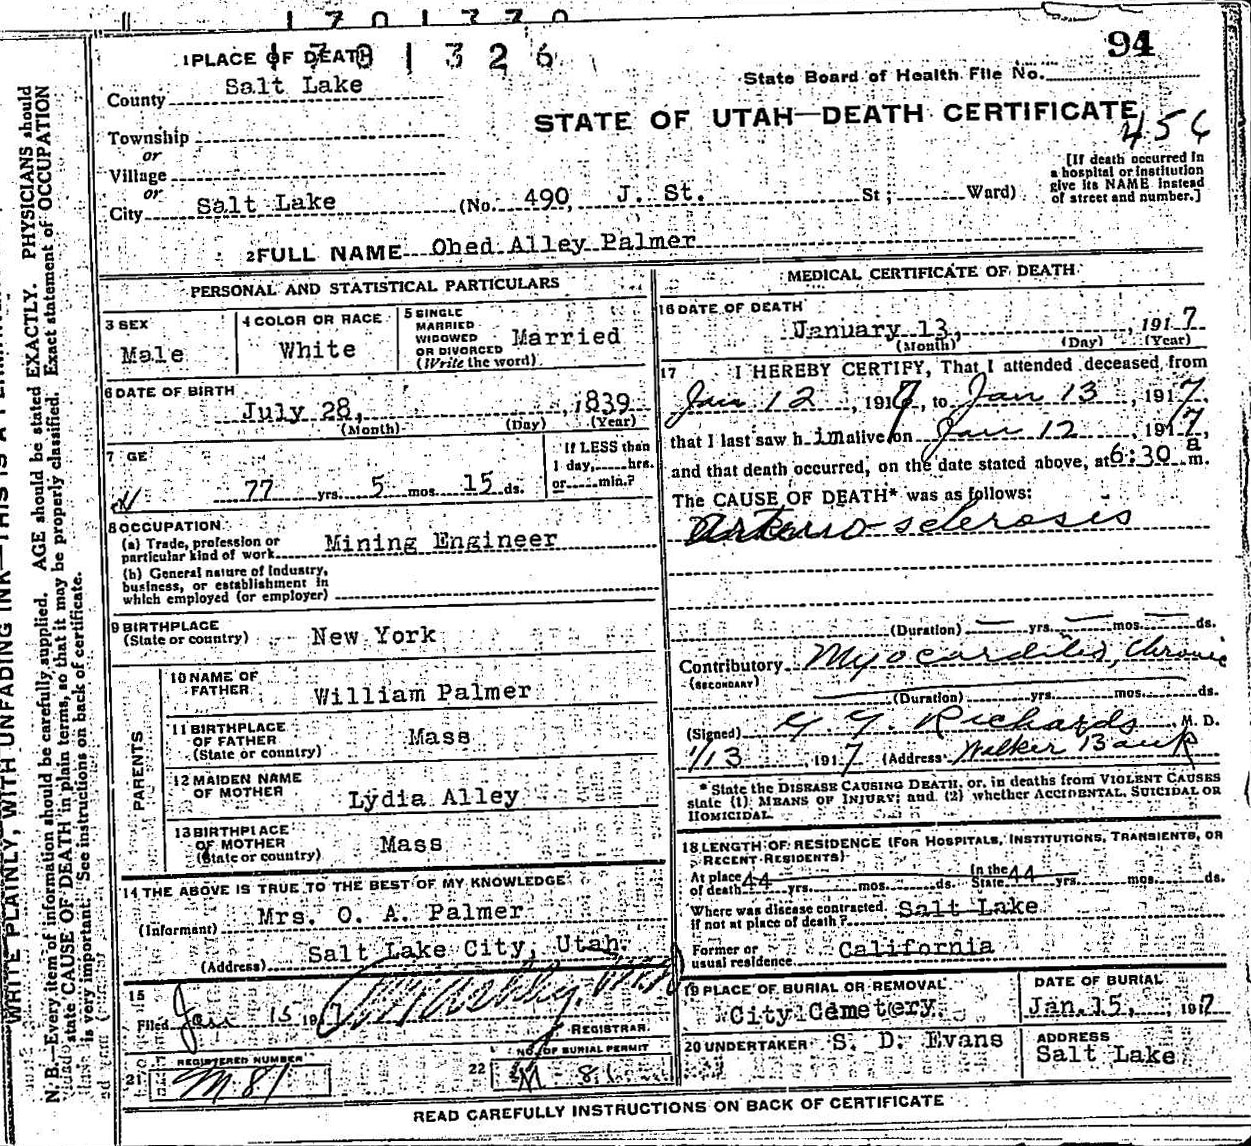 1701326
94
1 PLACE OF DEATH
State Board of Health File No.
County Salt Lake
STATE OF UTAH—DEATH CERTIFICATE
456
Township
or
Village
or
City Salt Lake (No. 490, J. St. St; Ward)
[If death occurred in
a hospital or institution
give its NAME instead
of street and number.]
2 FULL NAME Obed Alley Palmer
PERSONAL AND STATISTICAL PARTICULARS
3 SEX
Male
4 COLOR OR RACE
White
5 SINGLE
MARRIED
WIDOWED
OR DIVORCED
(Write the word)
Married
6 DATE OF BIRTH
July 28, , 1839
(Month) (Day) (Year)
7 GE
77 yrs. 5 mos. 15 ds.
If LESS than
1 day, hrs.
or min.?
8 OCCUPATION
(a) Trade, profession or
particular kind of work Mining Engineer
(b) General nature of Industry,
business, or establishment in
which employed (or employer)
9 BIRTHPLACE
(State or country) New York
PARENTS
10 NAME OF
FATHER William Palmer
11 BIRTHPLACE
OF FATHER
(State or country) Mass
12 MAIDEN NAME
OF MOTHER Lydia Alley
13 BIRTHPLACE
OF MOTHER
(State or country) Mass
14 THE ABOVE IS TRUE TO THE BEST OF MY KNOWLEDGE
(Informant) Mrs. O. A. Palmer
(Address) Salt Lake City, Utah.
15
Filed Jan 15 191
REGISTRAR
21 REGISTERED NUMBER
M 81
22 NO. OF BURIAL PERMIT
M 81
MEDICAL CERTIFICATE OF DEATH
16 DATE OF DEATH
January 13, , 1917
(Month) (Day) (Year)
17 I HEREBY CERTIFY, That I attended deceased from
Jan 12 , 1917, to Jan 13 , 1917,
that I last saw h im alive on Jan 12 , 1917,
and that death occurred, on the date stated above, at 6:30 a m.
The CAUSE OF DEATH* was as follows:
Arterio-sclerosis
(Duration) yrs. mos. ds.
Contributory Myocarditis, Chronic
(SECONDARY)
(Duration) yrs. mos. ds.
(Signed) G. G. Richards M. D.
1/13 , 1917 (Address) Walker Bank
* State the DISEASE CAUSING DEATH, or, in deaths from VIOLENT CAUSES
state (1) MEANS OF INJURY; and (2) whether ACCIDENTAL, SUICIDAL OR
HOMICIDAL.
18 LENGTH OF RESIDENCE (FOR HOSPITALS, INSTITUTIONS, TRANSIENTS, OR
RECENT RESIDENTS)
At place
of death 44 yrs. mos. ds. In the
State 44 yrs. mos. ds.
Where was disease contracted
if not at place of death? Salt Lake
Former or
usual residence California
19 PLACE OF BURIAL OR REMOVAL
City Cemetery
DATE OF BURIAL
Jan. 15, , 1917
20 UNDERTAKER S. D. Evans
ADDRESS
Salt Lake
READ CAREFULLY INSTRUCTIONS ON BACK OF CERTIFICATE
WRITE PLAINLY, WITH UNFADING INK—THIS IS A
N. B.—Every item of information should be carefully supplied. AGE should be stated EXACTLY. PHYSICIANS should
state CAUSE OF DEATH in plain terms, so that it may be properly classified. Exact statement of OCCUPATION
is very important. See instructions on back of certificate.